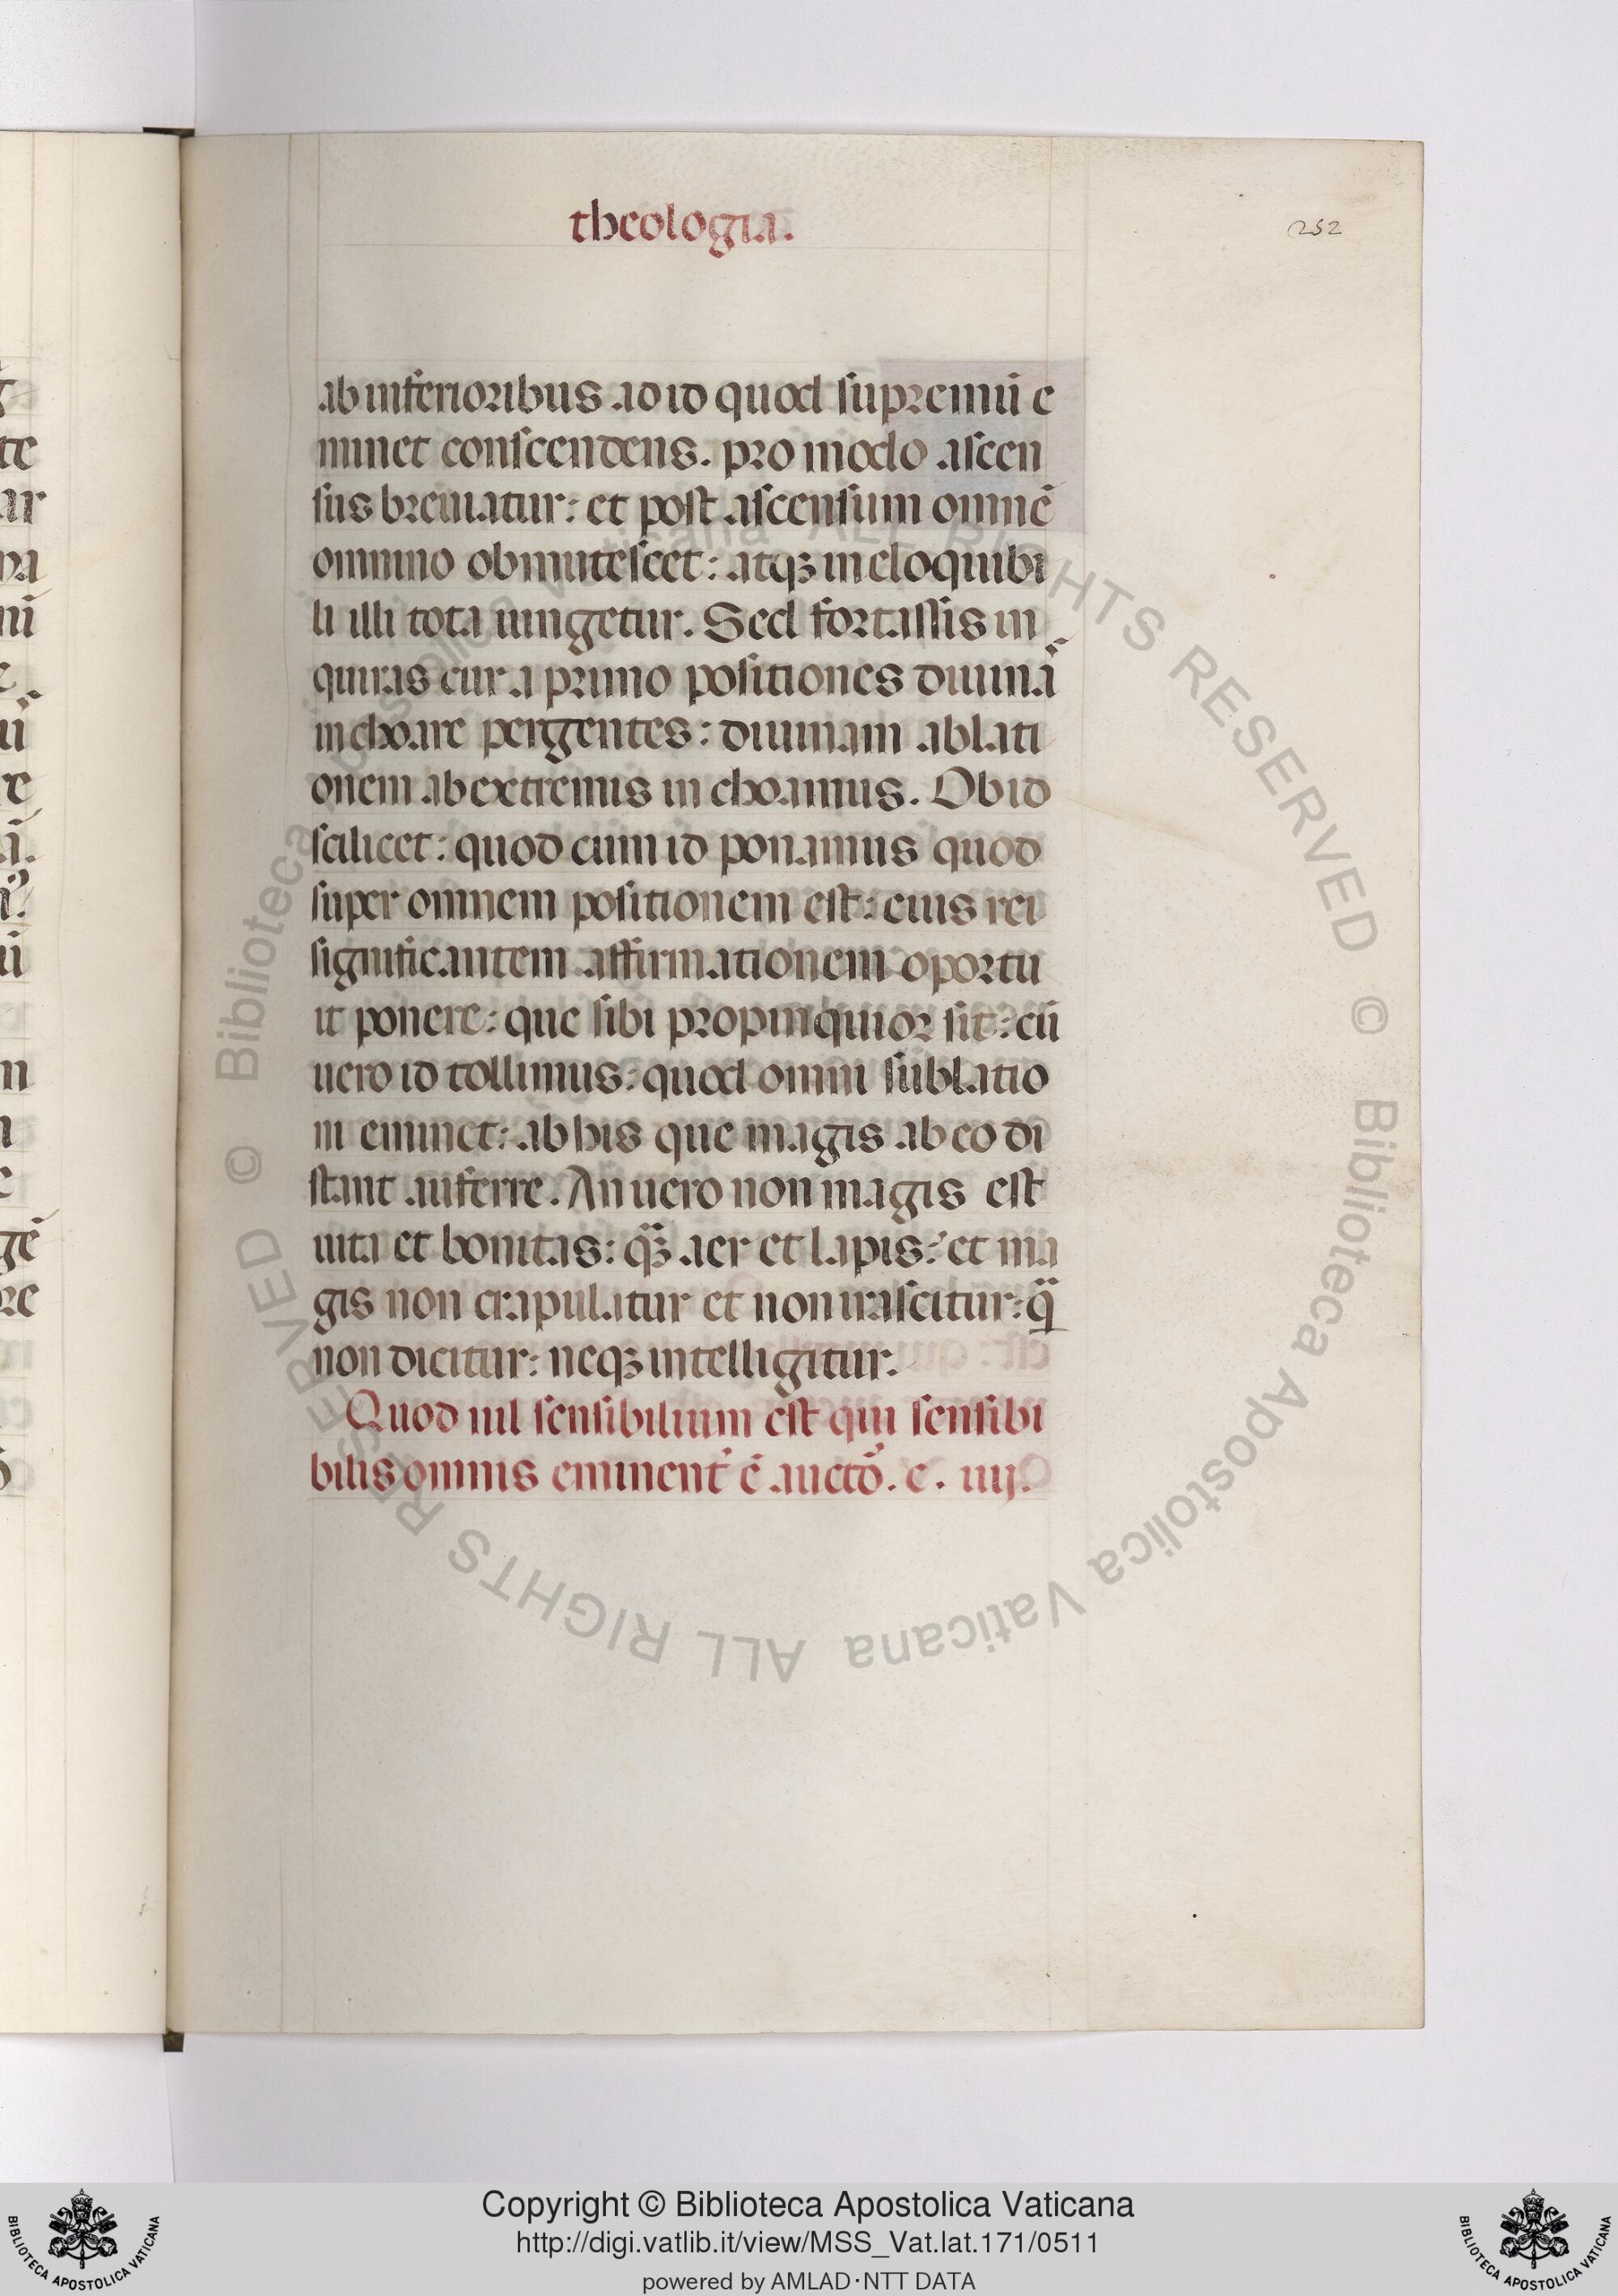 theologia.
252
ab inferioribus ad id quod supremū e
minet conscendens. pro modo ascen
sus breuiatur: et post ascensum omnē
omnino obmutescet: atqꝫ ineloquibi
li illi tota iungetur. Sed fortassis in
quiras cur a primo positiones diuinā
inchoare pergentes: diuinam ablati
onem ab extremis inchoamus. Ob id
scilicet: quod cum id ponamus quod
super omnem positionem est: eius rei
significantem affirmationem oportu
it ponere: que sibi propinquior sit: cū
uero id tollimus: quod omni sublatio
ni eminet: ab his que magis ab eo di
stant auferre. An uero non magis est
uita et bonitas: qꝫ̄ aer et lapis: et ma
gis non crapulatur et non irascitur: q̄
non dicitur: neqꝫ intelligitur.
Quod nil sensibilium est qui sensibi
bilis omnis eminent̄ ē auctō. c. iiij.
© Biblioteca Apostolica Vaticana ALL RIGHTS RESERVED
© Biblioteca Apostolica Vaticana ALL RIGHTS RESERVED
Copyright © Biblioteca Apostolica Vaticana
http://digi.vatlib.it/view/MSS_Vat.lat.171/0511
powered by AMLAD·NTT DATA
BIBLIOTECA APOSTOLICA VATICANA
BIBLIOTECA APOSTOLICA VATICANA